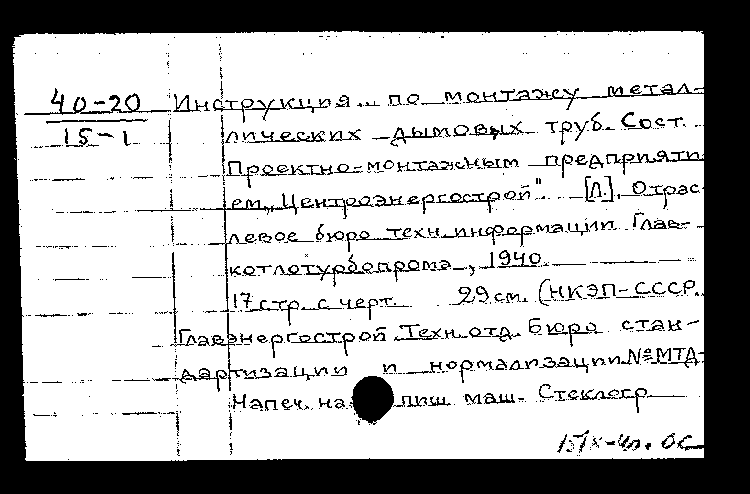 40-20
15-1
Инструкция.. по монтажу метал-
лических дымовых труб. Сост.
Проектно-монтажным предприяти-
ем „Центроэнергострой". [Л]. Отрас-
левое бюро техн. информации Глав-
котлотурбопрома, 1940.
17 стр. с черт. 29 см. (НКЭП-СССР.
Главэнергострой. Техн. отд. Бюро стан-
дартизации и нормализации №МТД-
Напеч. на пиш. маш. Стеклогр